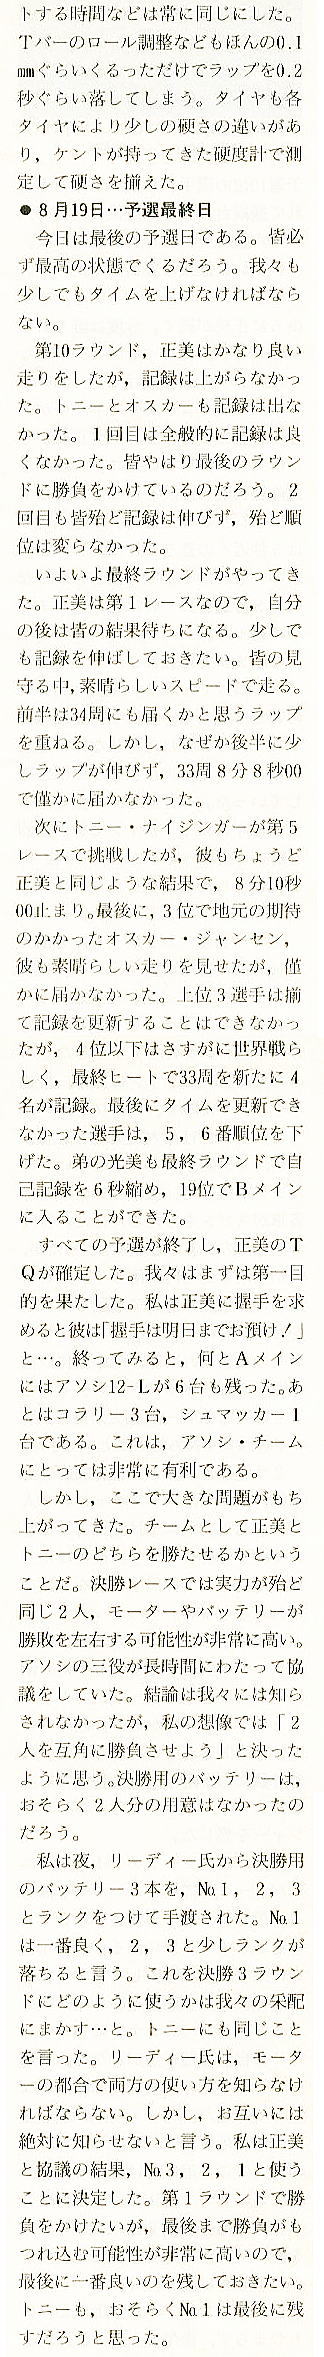 トする時間などは常に同じにした。
Tバーのロール調整などもほんの0.1
㎜ぐらいくるっただけでラップを0.2
秒ぐらい落してしまう。タイヤも各
タイヤにより少しの硬さの違いがあ
り，ケントが持ってきた硬度計で測
定して硬さを揃えた。
●8月19日…予選最終日
　今日は最後の予選日である。皆必
ず最高の状態でくるだろう。我々も
少しでもタイムを上げなければなら
ない。
　第10ラウンド，正美はかなり良い
走りをしたが，記録は上がらなかっ
た。トニーとオスカーも記録は出な
かった。1回目は全般的に記録は良
くなかった。皆やはり最後のラウン
ドに勝負をかけているのだろう。2
回目も皆殆ど記録は伸びず，殆ど順
位は変らなかった。
　いよいよ最終ラウンドがやってき
た。正美は第1レースなので，自分
の後は皆の結果待ちになる。少しで
も記録を伸ばしておきたい。皆の見
守る中，素晴らしいスピードで走る。
前半は34周にも届くかと思うラップ
を重ねる。しかし，なぜか後半に少
しラップが伸びず，33周8分8秒00
で僅かに届かなかった。
　次にトニー・ナイジンガーが第5
レースで挑戦したが，彼もちょうど
正美と同じような結果で，8分10秒
00止まり。最後に，3位で地元の期待
のかかったオスカー・ジャンセン，
彼も素晴らしい走りを見せたが，僅
かに届かなかった。上位3選手は揃
て記録を更新することはできなかっ
たが，4位以下はさすがに世界戦ら
しく，最終ヒートで33周を新たに4
名が記録。最後にタイムを更新でき
なかった選手は，5，6番順位を下
げた。弟の光美も最終ラウンドで自
己記録を6秒縮め，19位でBメイン
に入ることができた。
　すべての予選が終了し，正美のT
Qが確定した。我々はまずは第一目
的を果たした。私は正美に握手を求
めると彼は「握手は明日までお預け！」
と…。終ってみると，何とAメイン
にはアソシ12-Lが6台も残った。あ
とはコラリー3台，シュマッカー1
台である。これは，アソシ・チーム
にとっては非常に有利である。
　しかし，ここで大きな問題がもち
上がってきた。チームとして正美と
トニーのどちらを勝たせるかという
ことだ。決勝レースでは実力が殆ど
同じ2人，モーターやバッテリーが
勝敗を左右する可能性が非常に高い。
アソシの三役が長時間にわたって協
議をしていた。結論は我々には知ら
されなかったが，私の想像では「2
人を互角に勝負させよう」と決った
ように思う。決勝用のバッテリーは，
おそらく2人分の用意はなかったの
だろう。
　私は夜，リーディー氏から決勝用
のバッテリー3本を，№1，2，3
とランクをつけて手渡された。№1
は一番良く，2，3と少しランクが
落ちると言う。これを決勝3ラウン
ドにどのように使うかは我々の采配
にまかす…と。トニーにも同じこと
を言った。リーディー氏は，モータ
ーの都合で両方の使い方を知らなけ
ればならない。しかし，お互いには
絶対に知らせないと言う。私は正美
と協議の結果，№3，2，1と使う
ことに決定した。第1ラウンドで勝
負をかけたいが，最後まで勝負がも
つれ込む可能性が非常に高いので，
最後に一番良いのを残しておきたい。
トニーも，おそらく№1は最後に残
すだろうと思った。